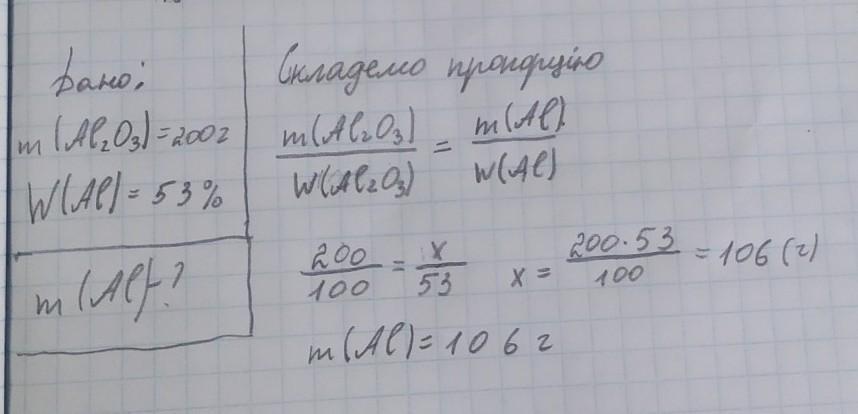 Дано:
m(Al₂O₃)=200г
W(Al)=53%
m(Al)-?
Складемо пропорцію
m(Al₂O₃)/W(Al₂O₃) = m(Al)/W(Al)
200/100 = x/53 x = 200·53/100 = 106(г)
m(Al)=106г